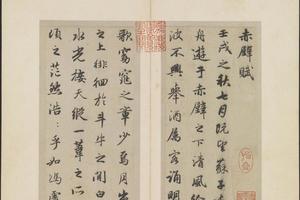 赤壁賦
壬戌之秋七月既望蘇子
舟遊于赤壁之下清風徐
波不興舉酒屬客誦明
歌窈窕之章少焉月出
之上徘徊於斗牛之間白
水光接天縱一葦之所
頃之茫然浩〻乎如馮虛